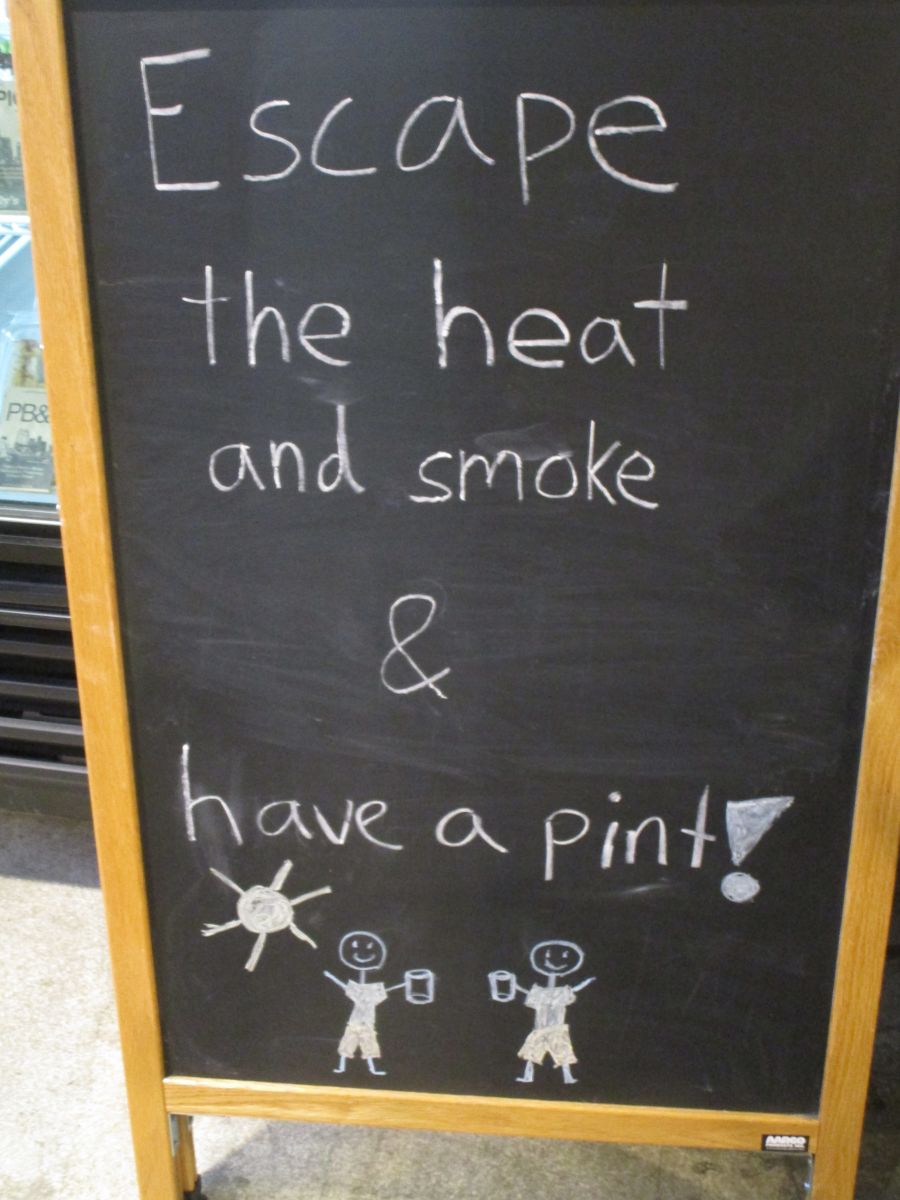 Escape
the heat
and smoke
&
have a pint!
PB&
AARCO